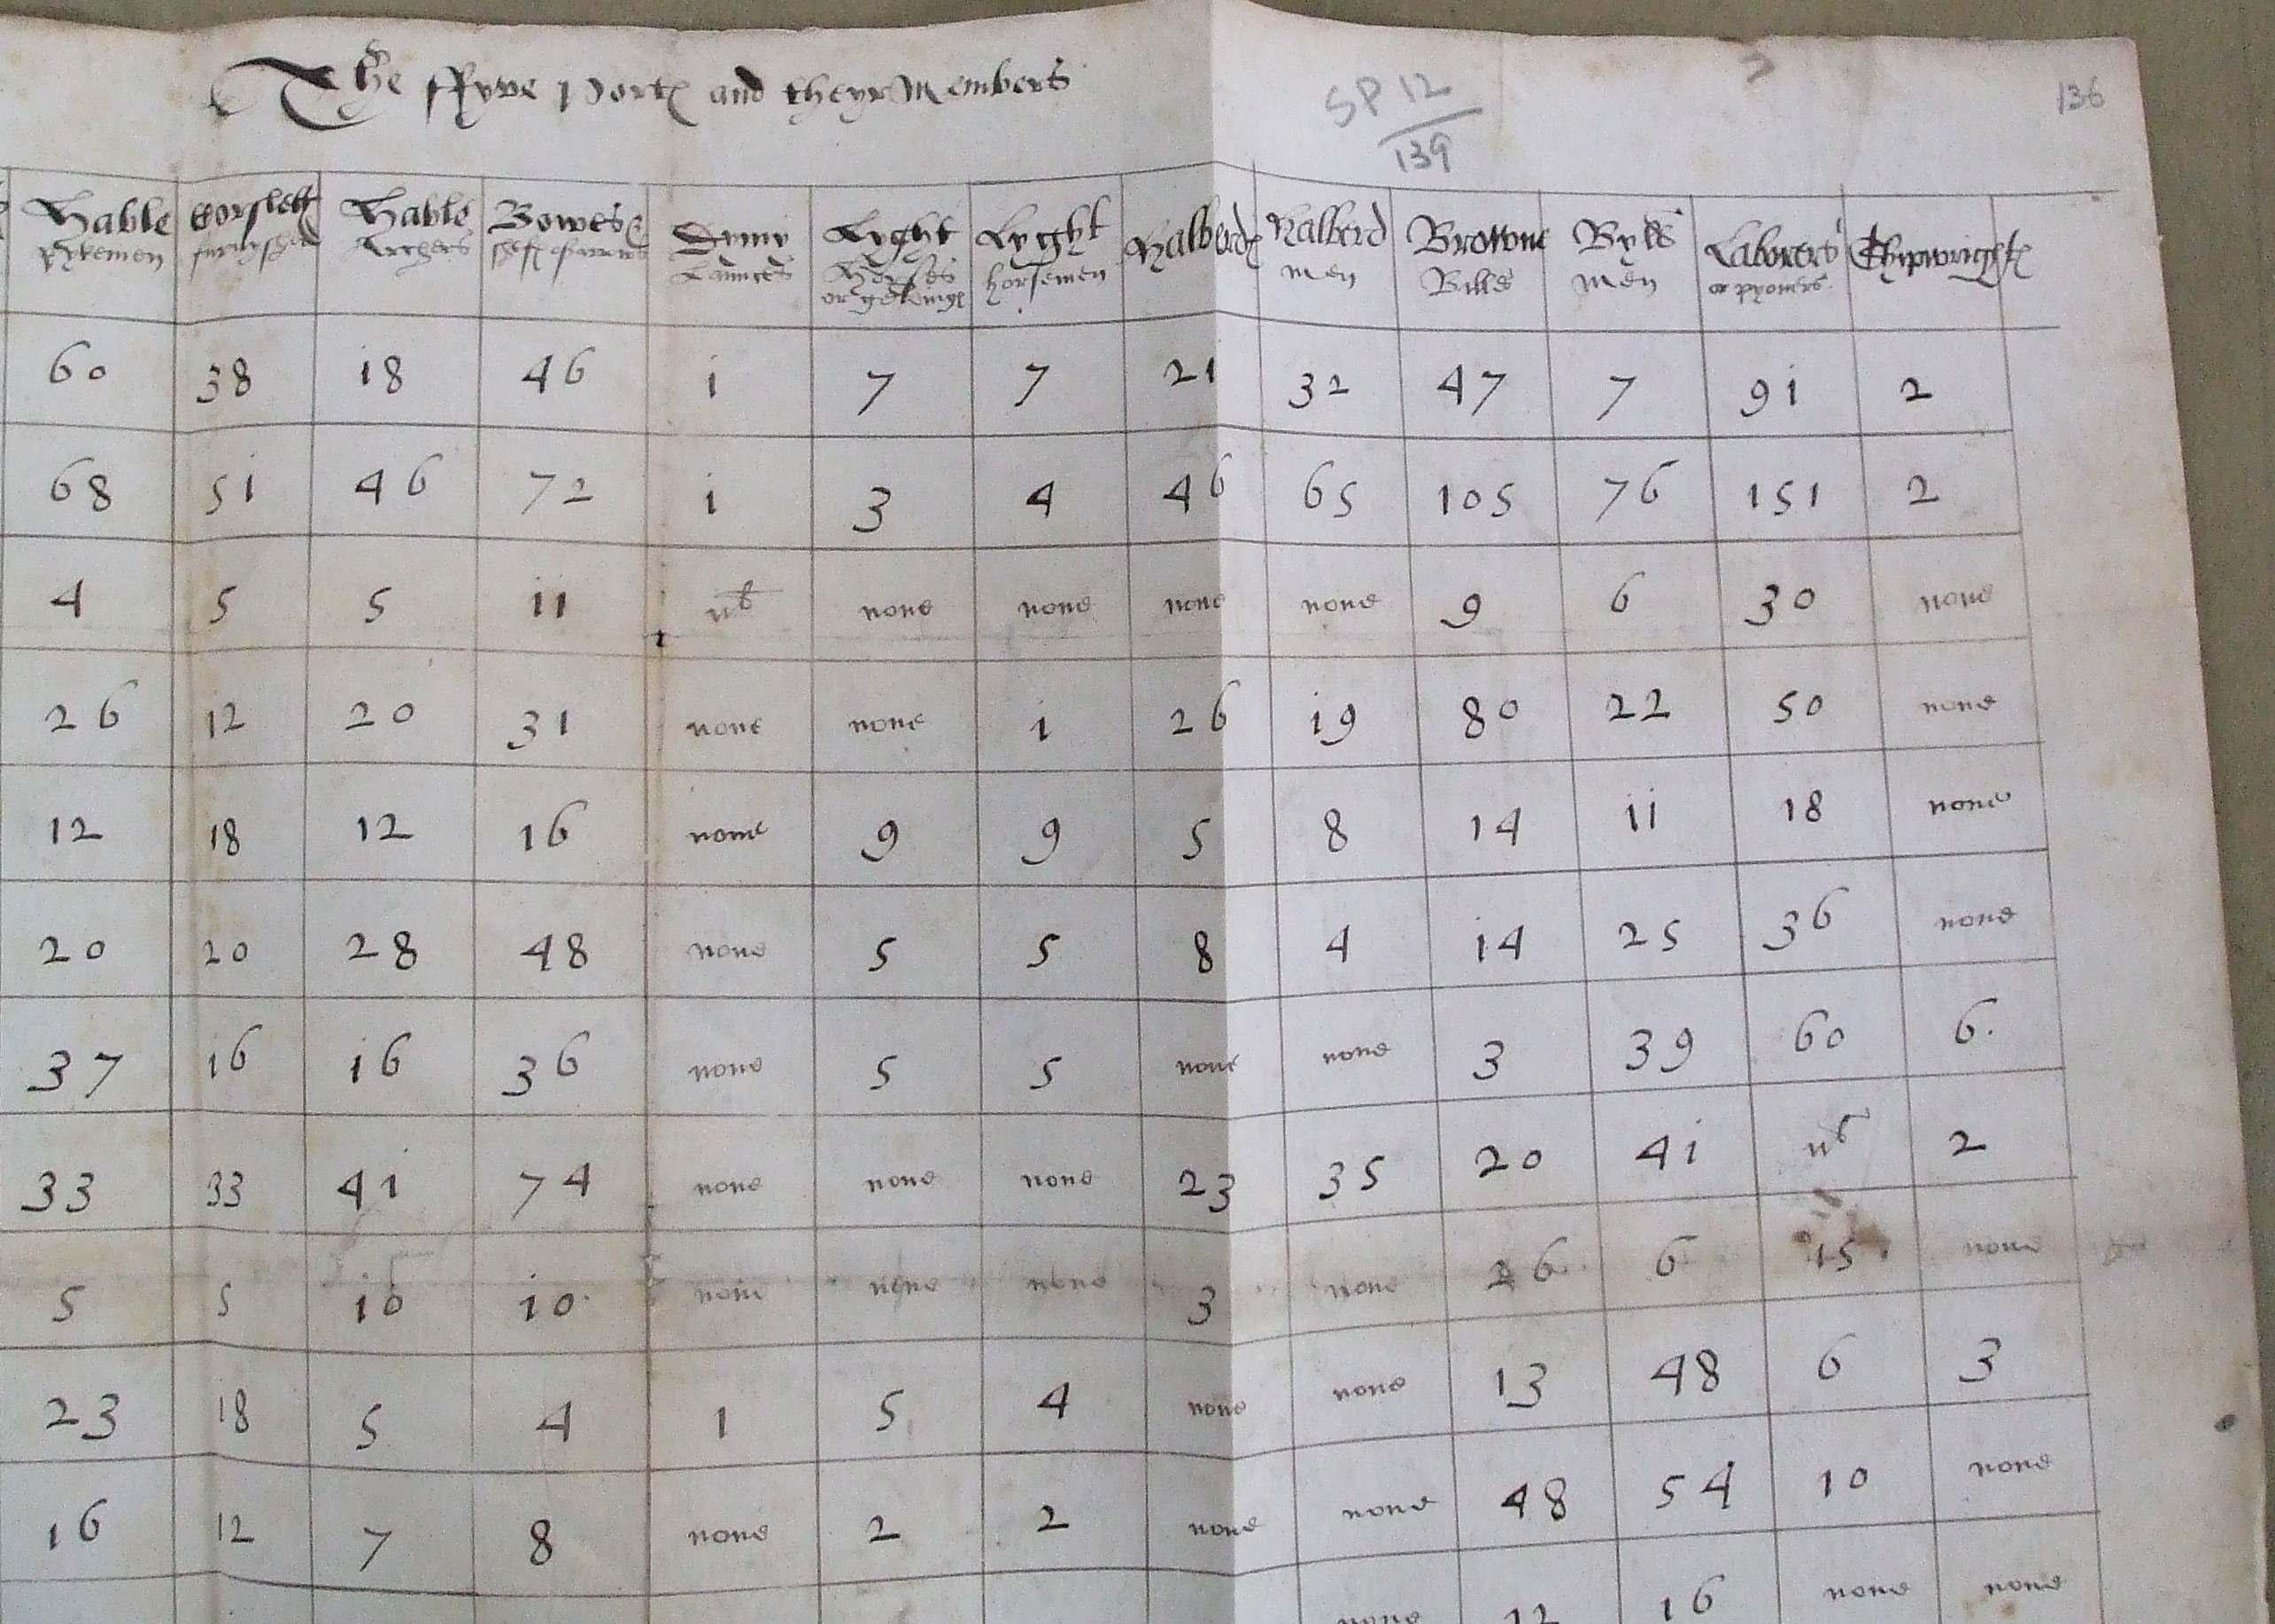 The ffyve Port and theyr Members
SP 12
139
136
Hable pykemen | Corslett furnyshed | Hable Archers | Bowes & shef of arrows | Demy Launces | Lyght Horses or geldings | Lyght horsemen | Halberd | Halberd men | Browne Bills | Bylls men | Laborers or pyoners | Shipwright
60 38 18 46 i 7 7 21 32 47 7 9i 2
68 5i 46 72 i 3 4 46 65 105 76 151 2
4 5 5 ii none none none none 9 6 30 none
26 12 20 31 none none i 26 i9 80 22 50 none
12 18 12 16 none 9 9 5 8 14 ii 18 none
20 20 28 48 none 5 5 8 4 i4 25 36 none
37 16 i6 36 none 5 5 none none 3 39 60 6.
33 33 4i 74 none none none 23 35 20 4i 2
5 5 10 10 none none none 3 none 26 6 15 none
23 18 5 4 1 5 4 none none 13 48 6 3
16 12 7 8 none 2 2 none none 48 54 10 none
none 12 16 none none